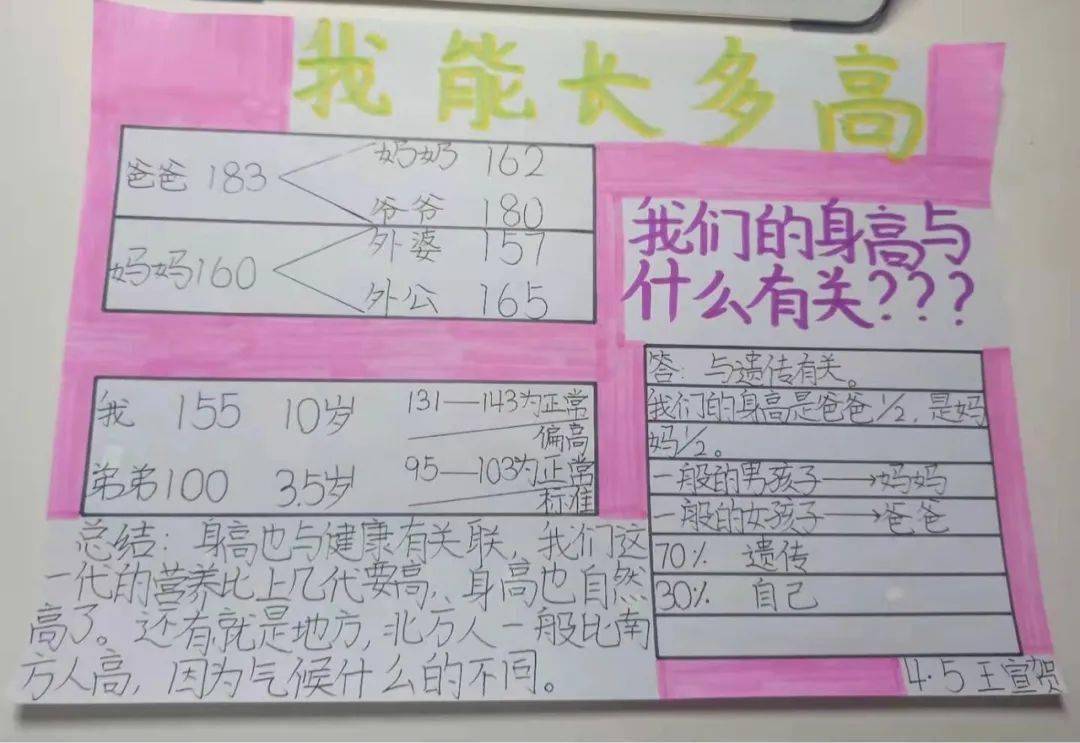 我能长多高
爸爸 183
妈妈 160
奶奶 162
爷爷 180
外婆 157
外公 165
我 155 10岁 131—143为正常
偏高
弟弟 100 3.5岁 95—103为正常
标准
总结：身高也与健康有关联，我们这
一代的营养比上几代要高，身高也自然
高了。还有就是地方，北方人一般比南
方人高，因为气候什么的不同。
我们的身高与
什么有关？？？
答：与遗传有关。
我们的身高是爸爸1/2，是妈
妈1/2。
一般的男孩子→妈妈
一般的女孩子→爸爸
70% 遗传
30% 自己
4·5 王宣贺